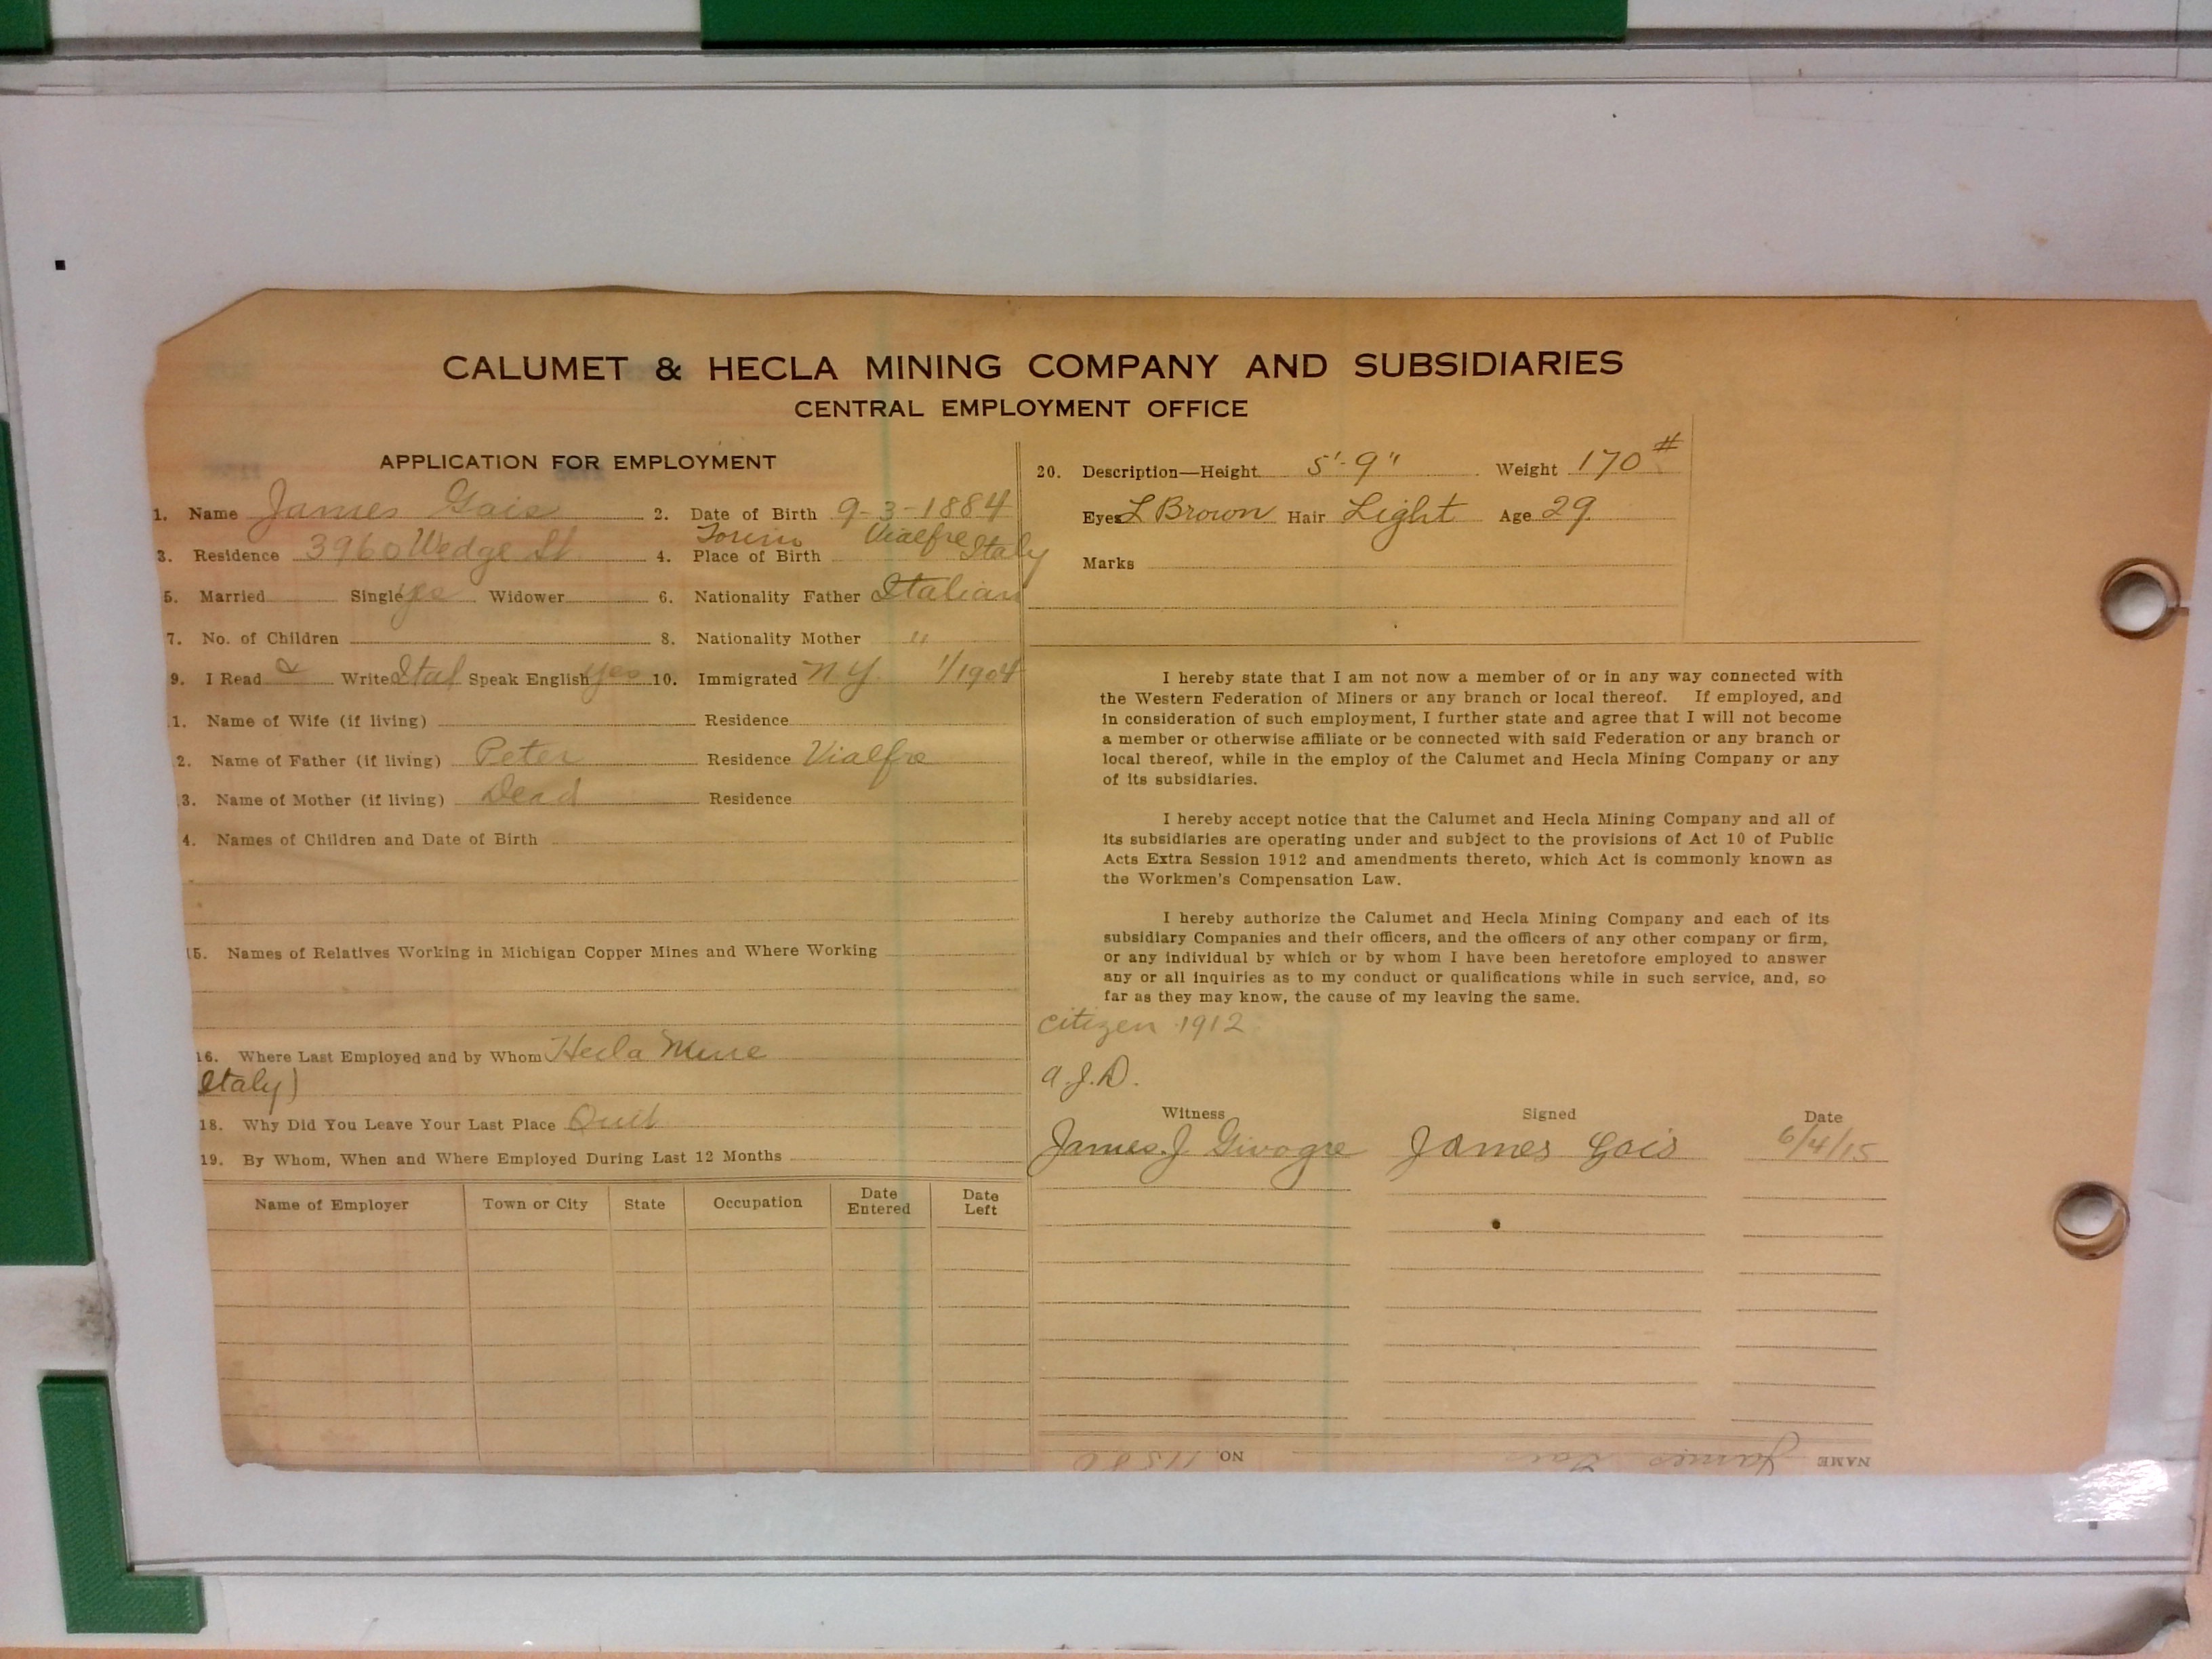 CALUMET & HECLA MINING COMPANY AND SUBSIDIARIES
CENTRAL EMPLOYMENT OFFICE
APPLICATION FOR EMPLOYMENT
1. Name James Gais 2. Date of Birth 9-3-1884
Torino Vialfre Italy
3. Residence 3960 Wedge St 4. Place of Birth
5. Married Single Widower 6. Nationality Father Italian
7. No. of Children 8. Nationality Mother "
9. I Read & Write Ital Speak English yes 10. Immigrated N.Y. 1/1904
1. Name of Wife (if living) Residence
2. Name of Father (if living) Peter Residence Vialfre
3. Name of Mother (if living) Dead Residence
4. Names of Children and Date of Birth
15. Names of Relatives Working in Michigan Copper Mines and Where Working
16. Where Last Employed and by Whom Hecla Mine
Italy)
18. Why Did You Leave Your Last Place Quit
19. By Whom, When and Where Employed During Last 12 Months
Name of Employer Town or City State Occupation Date Entered Date Left
20. Description—Height 5'-9" Weight 170#
Eyes L Brown Hair Light Age 29
Marks
I hereby state that I am not now a member of or in any way connected with
the Western Federation of Miners or any branch or local thereof. If employed, and
in consideration of such employment, I further state and agree that I will not become
a member or otherwise affiliate or be connected with said Federation or any branch or
local thereof, while in the employ of the Calumet and Hecla Mining Company or any
of its subsidiaries.
I hereby accept notice that the Calumet and Hecla Mining Company and all of
its subsidiaries are operating under and subject to the provisions of Act 10 of Public
Acts Extra Session 1912 and amendments thereto, which Act is commonly known as
the Workmen's Compensation Law.
I hereby authorize the Calumet and Hecla Mining Company and each of its
subsidiary Companies and their officers, and the officers of any other company or firm,
or any individual by which or by whom I have been heretofore employed to answer
any or all inquiries as to my conduct or qualifications while in such service, and, so
far as they may know, the cause of my leaving the same.
citizen 1912
a.J.D.
Witness Signed Date
James J Givogre James Gais 6/4/15
NAME James Gais NO.